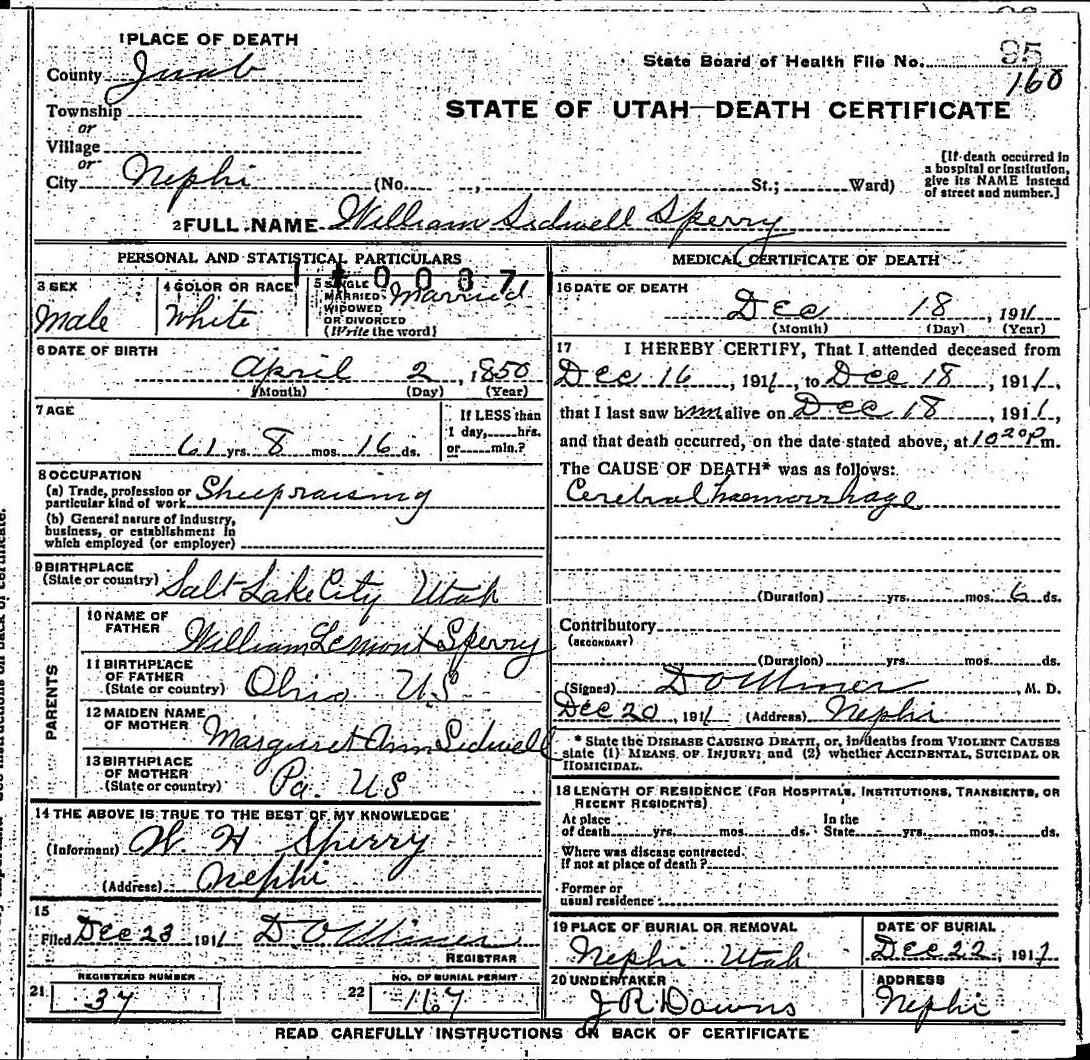 1 PLACE OF DEATH
County Juab
Township
or
Village
or
City Nephi (No. , St.; Ward)
State Board of Health File No. 95
160
STATE OF UTAH—DEATH CERTIFICATE
[If death occurred in
a hospital or institution,
give its NAME instead
of street and number.]
2 FULL NAME William Sidwell Sperry
PERSONAL AND STATISTICAL PARTICULARS
3 SEX
Male
4 COLOR OR RACE
White
5 SINGLE
MARRIED Married
WIDOWED
OR DIVORCED
(Write the word)
6 DATE OF BIRTH
April 2, 1850
(Month) (Day) (Year)
7 AGE
61 yrs. 8 mos. 16 ds.
If LESS than
1 day, hrs.
or min.?
8 OCCUPATION
(a) Trade, profession or
particular kind of work Sheepraising
(b) General nature of industry,
business, or establishment in
which employed (or employer)
9 BIRTHPLACE
(State or country) Salt Lake City Utah
PARENTS
10 NAME OF
FATHER William Lemont Sperry
11 BIRTHPLACE
OF FATHER
(State or country) Ohio U.S.
12 MAIDEN NAME
OF MOTHER Margaret Ann Sidwell
13 BIRTHPLACE
OF MOTHER
(State or country) Pa. U.S
14 THE ABOVE IS TRUE TO THE BEST OF MY KNOWLEDGE
(Informant) W. H Sperry
(Address) Nephi
15
Filed Dec 23 1911 D O Miner
REGISTRAR
REGISTERED NUMBER
21 37
NO. OF BURIAL PERMIT
22 167
MEDICAL CERTIFICATE OF DEATH
16 DATE OF DEATH
Dec 18, 1911
(Month) (Day) (Year)
17 I HEREBY CERTIFY, That I attended deceased from
Dec 16, 1911, to Dec 18, 1911,
that I last saw him alive on Dec 18, 1911,
and that death occurred, on the date stated above, at 10 20 P m.
The CAUSE OF DEATH* was as follows:
Cerebral haemorrhage
(Duration) yrs. mos. 6 ds.
Contributory
(SECONDARY)
(Duration) yrs. mos. ds.
(Signed) D O Miner, M. D.
Dec 20, 1911 (Address) Nephi
* State the DISEASE CAUSING DEATH, or, in deaths from VIOLENT CAUSES
state (1) MEANS OF INJURY; and (2) whether ACCIDENTAL, SUICIDAL OR
HOMICIDAL.
18 LENGTH OF RESIDENCE (FOR HOSPITALS, INSTITUTIONS, TRANSIENTS, OR
RECENT RESIDENTS)
At place
of death yrs. mos. ds.
In the
State yrs. mos. ds.
Where was disease contracted,
If not at place of death?
Former or
usual residence
19 PLACE OF BURIAL OR REMOVAL
Nephi Utah
DATE OF BURIAL
Dec 22, 1911
20 UNDERTAKER
J R Downs
ADDRESS
Nephi
READ CAREFULLY INSTRUCTIONS ON BACK OF CERTIFICATE